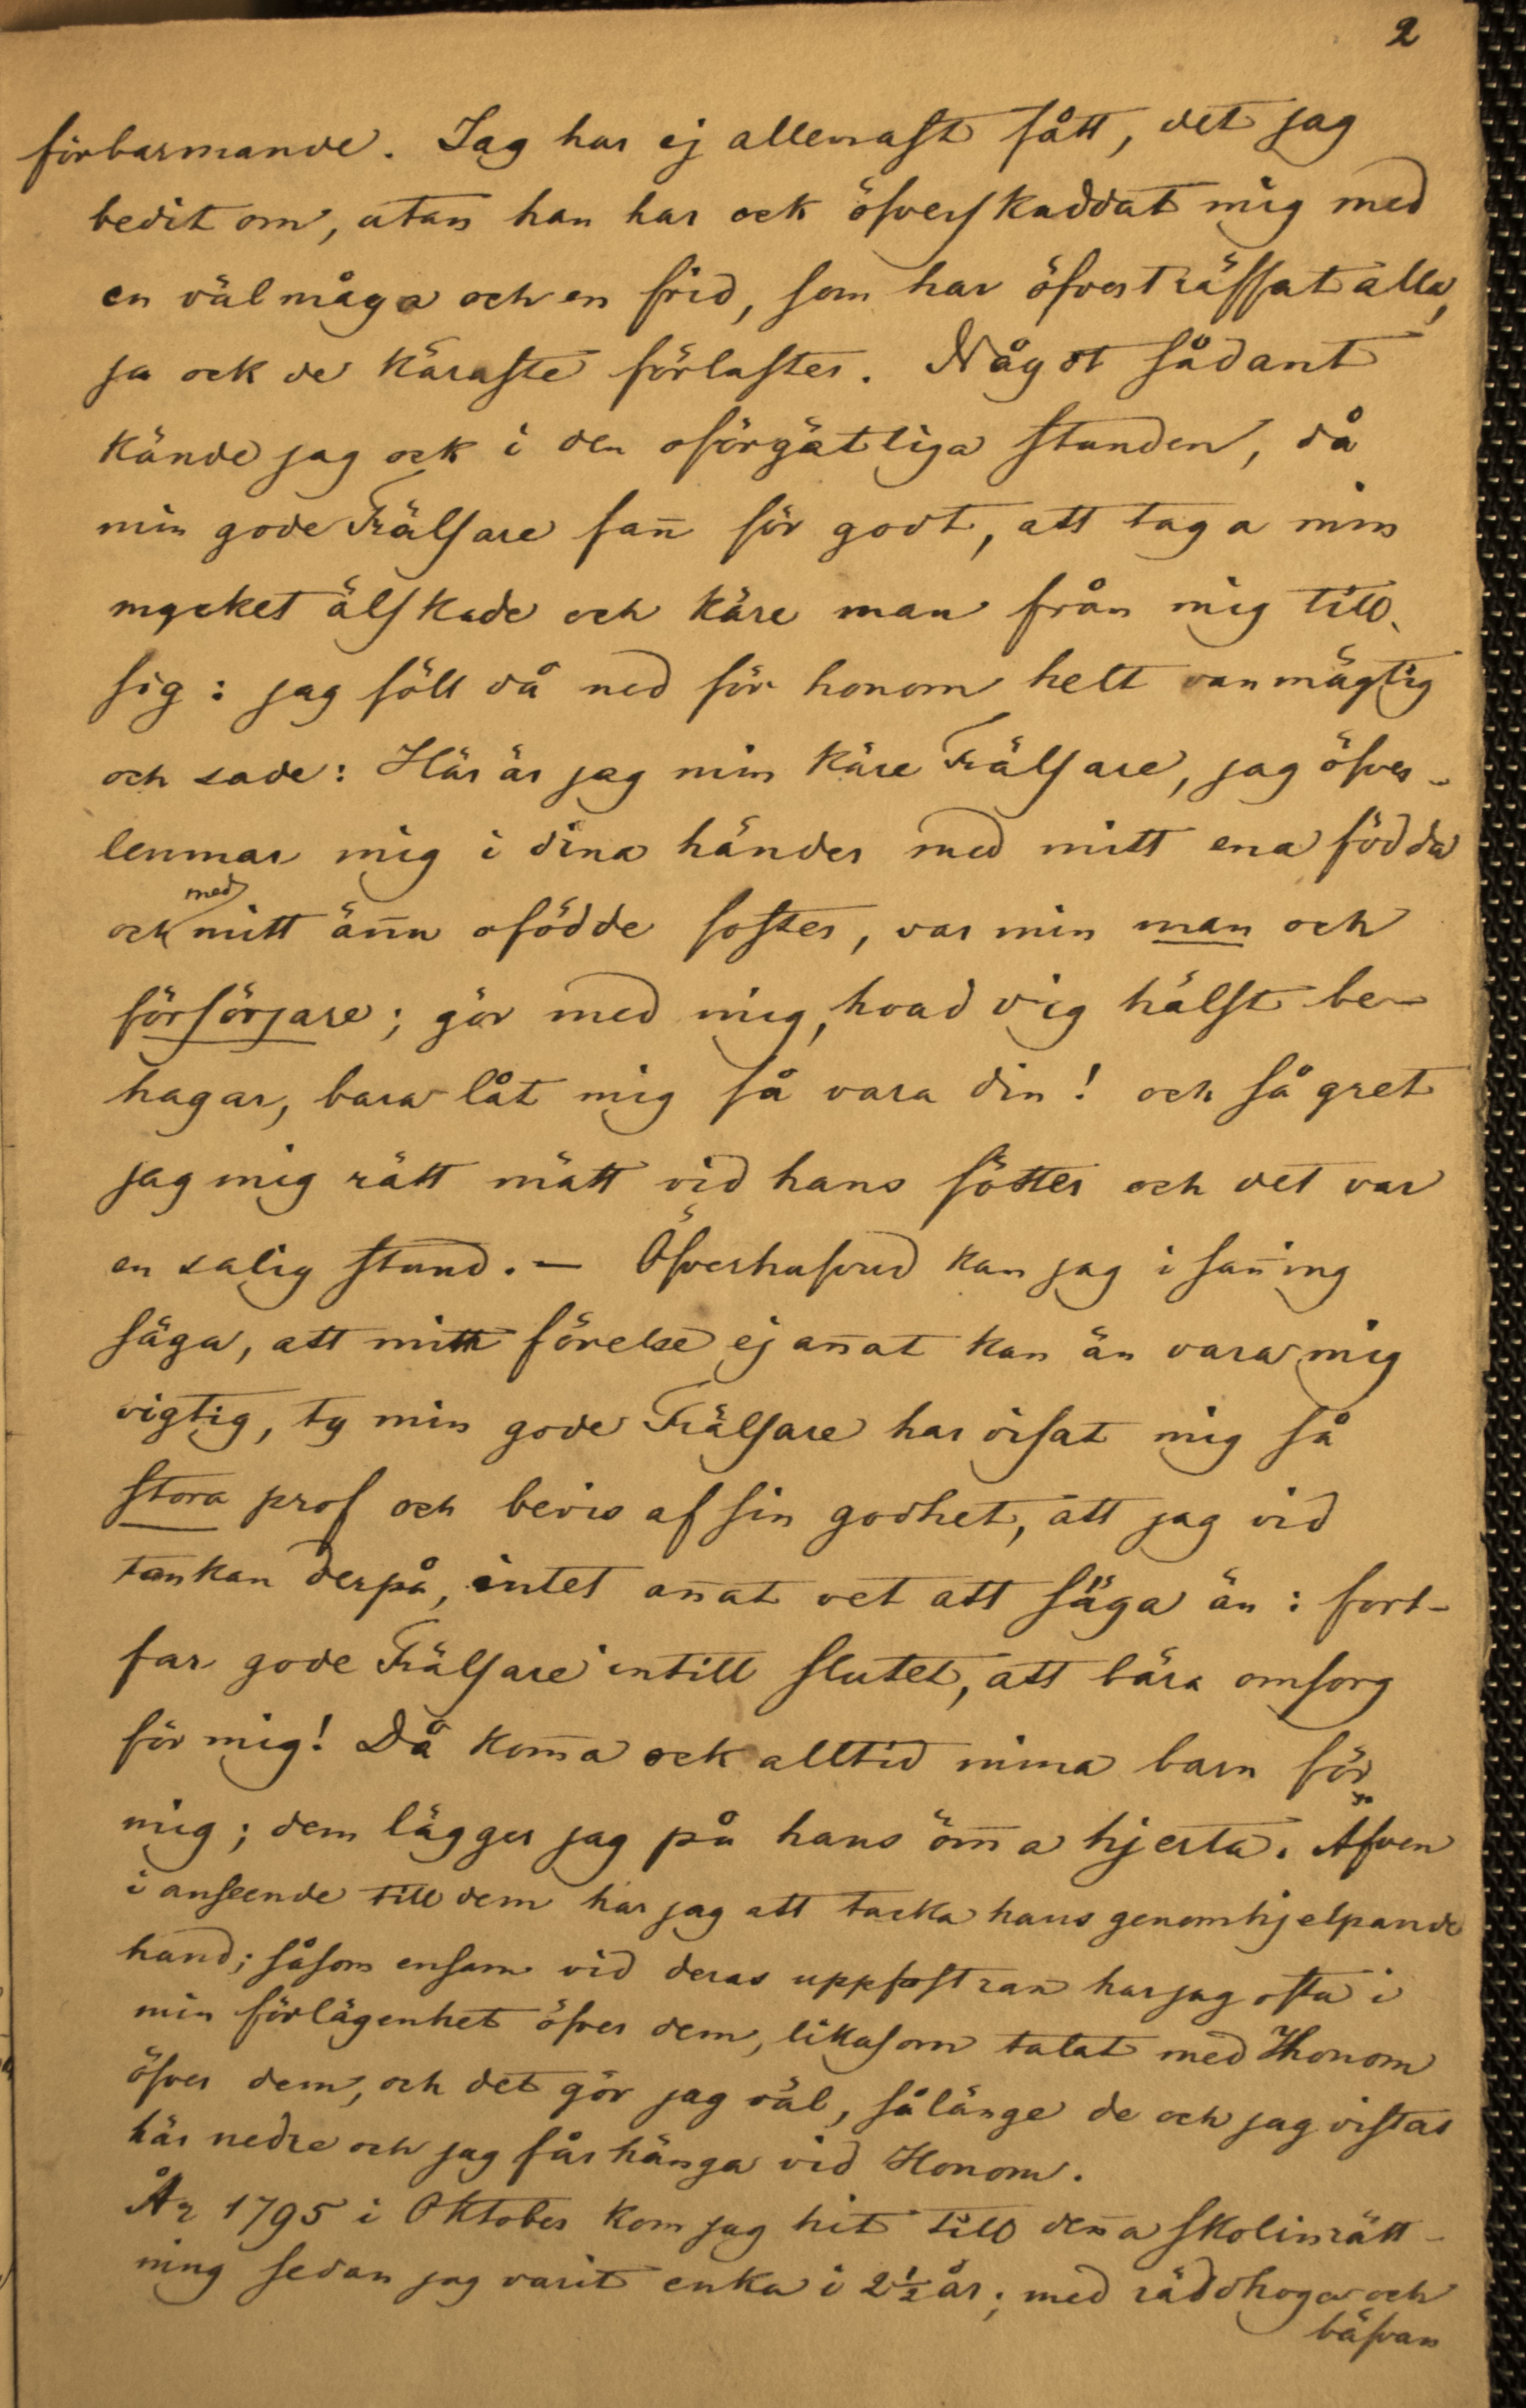 2
förbarmande. Jag har ej allenast fått, det jag
bedit om, utan han har ock öfverskuddat mig med
en välmåga och en frid, som har öfverträffat alla,
ja ock de käraste förluster. Något sådant
kände jag ock i den oförgätliga stunden, då
min gode Frälsare fan̄ för godt, att taga min
mycket älskade och käre man från mig till
sig: jag föll då ned för honom helt vanmägtig
och sade: Här är jag min käre Frälsare, jag öfver-
lemnar mig i dina händer med mitt ena födda
med
och mitt än̄u ofödde foster, var min man och
försörjare; gör med mig, hvad dig hälst be-
hagar, bara låt mig få vara din! och så gret
jag mig rätt mätt vid hans fötter och det var
en salig stund. — Öfverhufvud kan jag i san̄ing
säga, att mitt förelse ej an̄at kan än vara mig
vigtig, ty min gode Frälsare har visat mig så
stora prof och bevis af sin godhet, att jag vid
tankan derpå, intet an̄at vet att säga än: fort-
far gode Frälsare intill slutet, att bära omsorg
för mig! Då kom̄a ock alltid mina barn för
mig; dem lägger jag på hans öm̄a hjerta. Äfven
i anseende till dem har jag att tacka hans genomhjelpande
hand; såsom ensam vid deras uppfostran har jag ofta i
min förlägenhet öfver dem, likasom talat med Honom
öfver dem, och det gör jag väl, sålänge de och jag vistas
här nedre och jag får hänga vid Honom.
År 1795 i Oktober kom jag hit till den̄a skolinrätt-
ning sedan jag varit enka i 2½ år; med räddhoga och
bäfvan